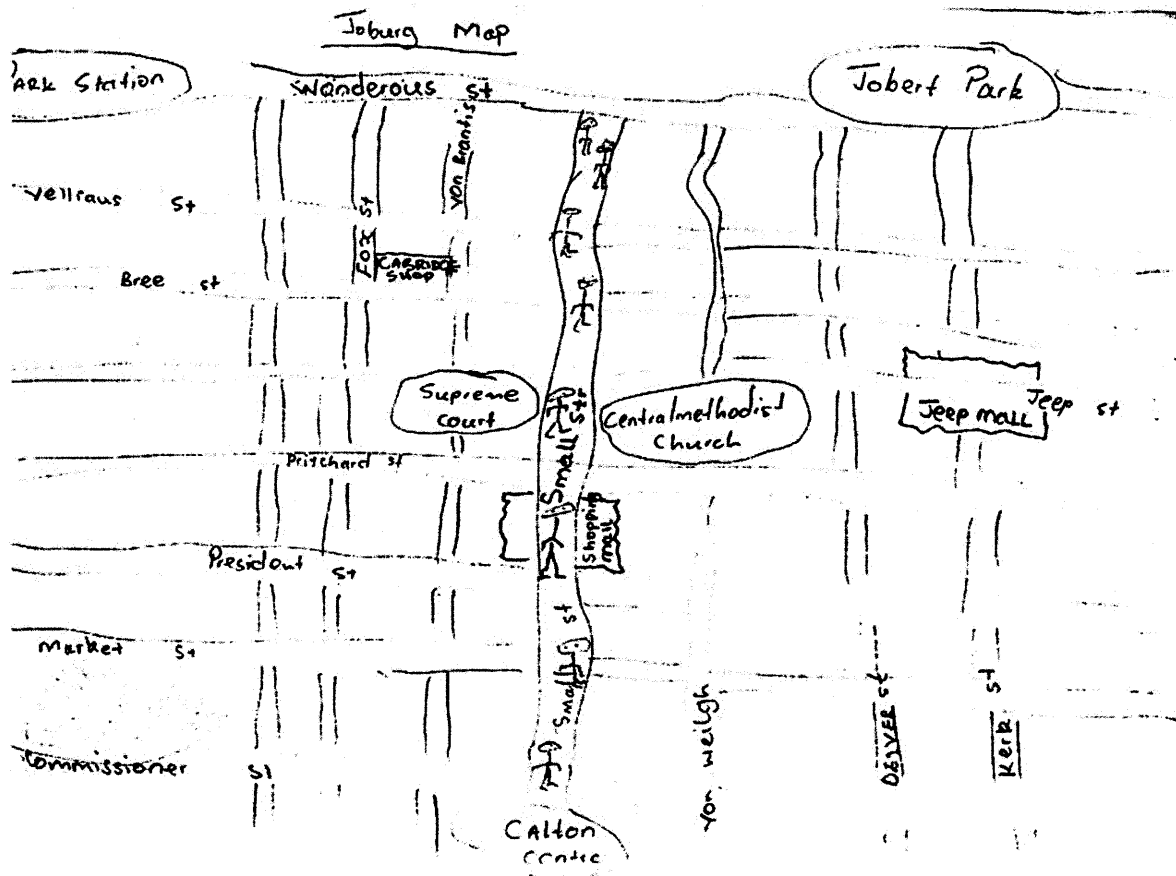 Joburg Map
ARK Station
Wanderous St
Jobert Park
Von Brantis
Vellraus St
FOX St
CABRIDGE
SHOP
Bree St
Supreme
court
Small Str
Centralmethodist
Church
Jeep mall
Jeep St
Pritchard St
Shopping
mall
President St
Small St
Market St
Von weiligh
St
Kerk St
Commissioner St
CAlton
centre